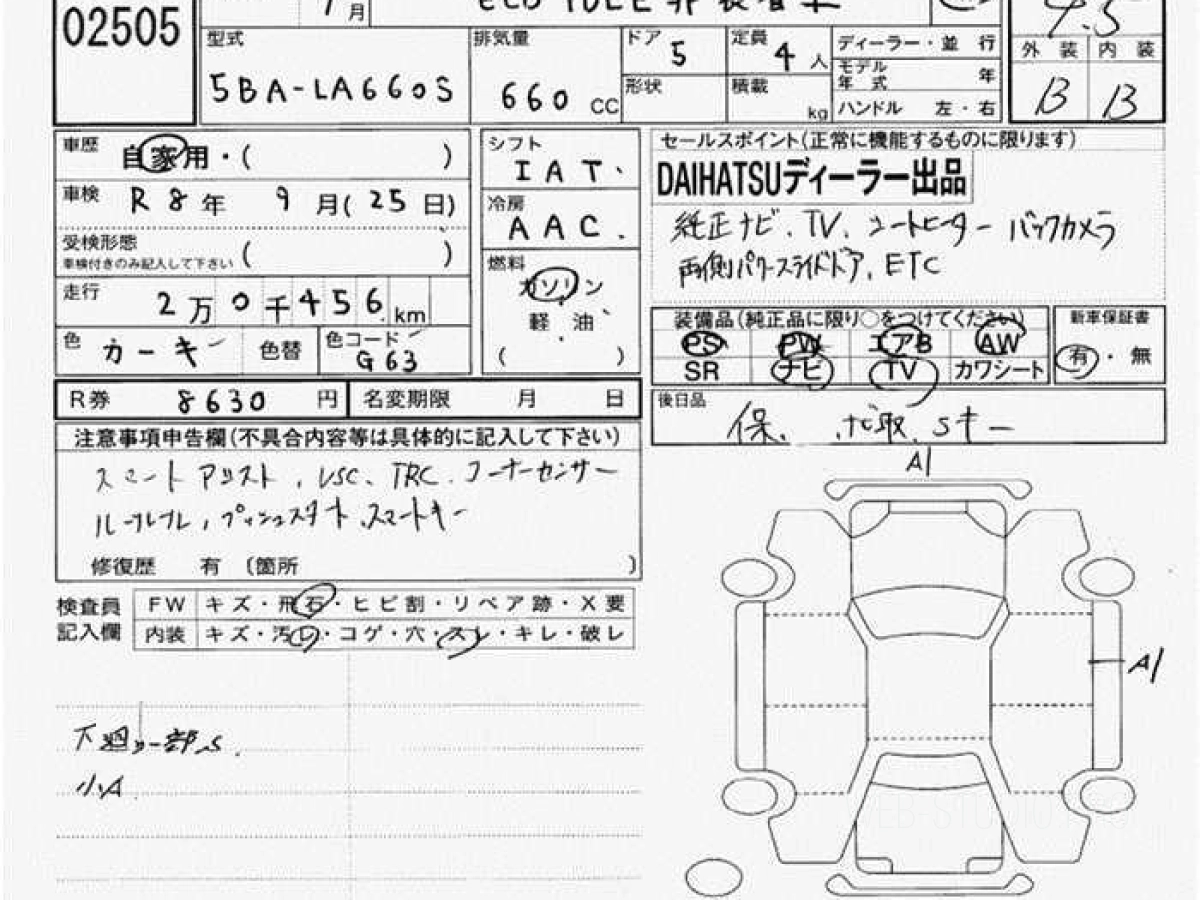 02505
7月
eco IDLE非装着車
4.5
型式
5BA-LA660S
排気量
660 CC
ドア
5
定員
4人
形状
積載
kg
ディーラー・並 行
モデル年式 年
ハンドル 左・右
外装 内装
B B
車歴
自家用・( )
車検
R8年 9月(25日)
受検形態
車検付きのみ記入して下さい ( )
走行
2万0千456km
色
カーキ
色替
色コード
G63
シフト
IAT
冷房
AAC
燃料
ガソリン
軽 油
( )
セールスポイント(正常に機能するものに限ります)
DAIHATSUディーラー出品
純正ナビ、TV、シートヒーター バックカメラ
両側パワースライドドア、ETC
装備品(純正品に限り○をつけてください)
PS PW エアB AW
SR ナビ TV カワシート
新車保証書
有・無
R券 8630円
名変期限 月 日
後日品
保、ナビ取、Sキー
注意事項申告欄(不具合内容等は具体的に記入して下さい)
スマートアシスト、VSC、TRC、コーナーセンサー
プッシュスタート、スマートキー
修復歴 有 (箇所 )
検査員記入欄
FW キズ・飛石・ヒビ割・リペア跡・X要
内装 キズ・汚レ・コゲ・穴・スレ・キレ・破レ
下廻り一部S
小A
A1
A1